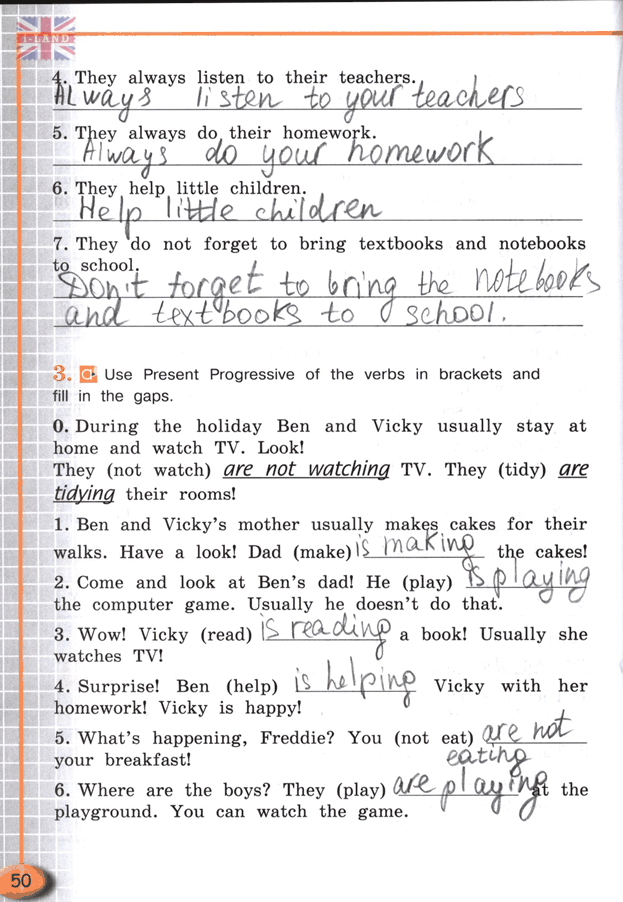 i-LAND
4. They always listen to their teachers.
Always listen to your teachers
5. They always do their homework.
Always do your homework
6. They help little children.
Help little children
7. They do not forget to bring textbooks and notebooks
to school.
Don't forget to bring the notebooks
and textbooks to school.
3. Use Present Progressive of the verbs in brackets and
fill in the gaps.
0. During the holiday Ben and Vicky usually stay at
home and watch TV. Look!
They (not watch) are not watching TV. They (tidy) are
tidying their rooms!
1. Ben and Vicky's mother usually makes cakes for their
walks. Have a look! Dad (make) is making the cakes!
2. Come and look at Ben's dad! He (play) is playing
the computer game. Usually he doesn't do that.
3. Wow! Vicky (read) is reading a book! Usually she
watches TV!
4. Surprise! Ben (help) is helping Vicky with her
homework! Vicky is happy!
5. What's happening, Freddie? You (not eat) are not
your breakfast! eating
6. Where are the boys? They (play) are playing at the
playground. You can watch the game.
50